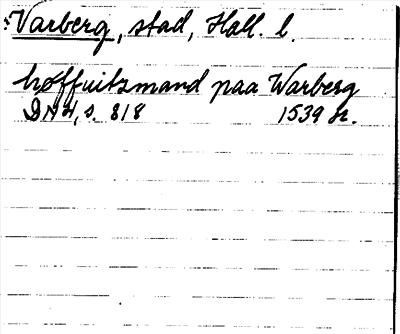 Varberg, stad, Hall. l.
hoffuitzmand paa Warberg
DN 4, s. 818 1539 or.